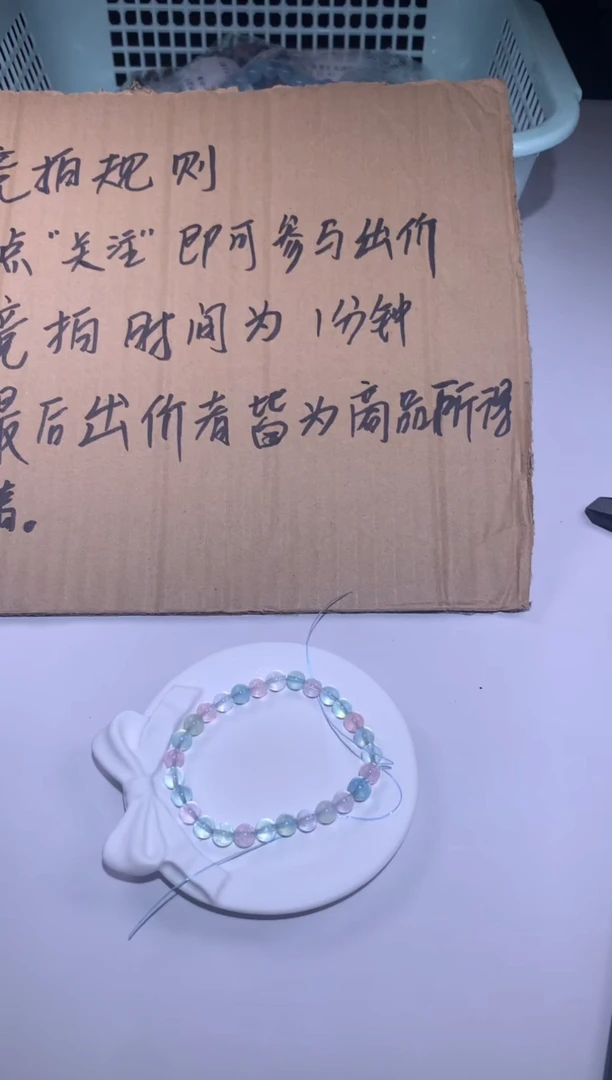 竞拍规则
点“关注”即可参与出价
竞拍时间为1分钟
最后出价者皆为商品所得
者。